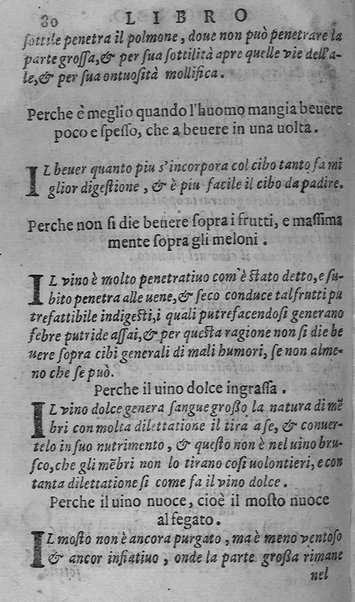 80 LIBRO
sottile penetra il polmone, doue non può penetrare la
parte grossa, & per sua sottilità apre quelle vie dell'a-
le, & per sua ontuosità mollifica.
Perche è meglio quando l'huomo mangia beuere
poco e spesso, che a beuere in una uolta.
IL beuer quanto piu s'incorpora col cibo tanto fa mi
glior digestione, & è piu facile il cibo da padire.
Perche non si die beuere sopra i frutti, e massima
mente sopra gli meloni.
IL vino è molto penetratiuo com'è stato detto, e su-
bito penetra alle uene, & seco conduce tal frutti pu
trefattibile indigesti, i quali putrefacendosi generano
febre putride assai, & per questa ragione non si die be
uere sopra cibi generali di mali humori, se non alme-
no che se può.
Perche il uino dolce ingrassa.
IL vino dolce genera sangue grosso la natura di mē
bri con molta dilettatione il tira a se, & conuer-
telo in suo nutrimento, & questo non è nel uino bru-
sco, che gli mēbri non lo tirano cosi uolontieri, e con
tanta dilettatione si come fa il vino dolce.
Perche il uino nuoce, cioè il mosto nuoce
al fegato.
IL mosto non è ancora purgato, ma è meno ventoso
& ancor infiatiuo, onde la parte grossa rimane
nel